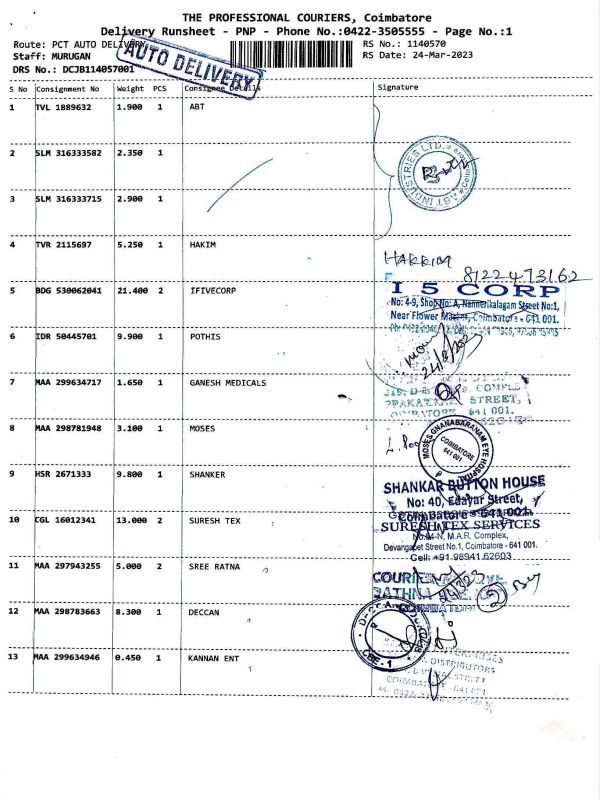 THE PROFESSIONAL COURIERS, Coimbatore
Delivery Runsheet - PNP - Phone No.:0422-3505555 - Page No.:1
Route: PCT AUTO DELIVERY
RS No.: 1140570
Staff: MURUGAN
RS Date: 24-Mar-2023
DRS No.: DCJB114057001
AUTO DELIVERY
S No Consignment No Weight PCS Consignee Details Signature
1 TVL 1889632 1.900 1 ABT
ABT INDUSTRIES LTD.
2 SLM 316333582 2.350 1
3 SLM 316333715 2.900 1
4 TVR 2115697 5.250 1 HAKIM
HAKKIM
8122473162
5 BDG 530062041 21.400 2 IFIVECORP
I 5 CORP
No: 4-9, Shop No: A, Nammerikalagam Street No:1,
Near Flower Market, Coimbatore - 641 001.
6 IDR 50445701 9.900 1 POTHIS
7 MAA 299634717 1.650 1 GANESH MEDICALS
STREET,
641 001.
8 MAA 298781948 3.100 1 MOSES
MOSES GNANABARANAM EYE HOSPITAL
COIMBATORE
641 001
9 HSR 2671333 9.800 1 SHANKER
SHANKAR BUTTON HOUSE
No: 40, Edayar Street,
Coimbatore - 641 001.
10 CGL 16012341 13.000 2 SURESH TEX
SURESH TEX SERVICES
No.94-N, M.A.R. Complex,
Devangapet Street No.1, Coimbatore - 641 001.
Cell: +91 98941 62603
11 MAA 297943255 5.000 2 SREE RATNA
12 MAA 298783663 8.300 1 DECCAN
CBE - 1
13 MAA 299634946 0.450 1 KANNAN ENT
DISTRIBUTORS